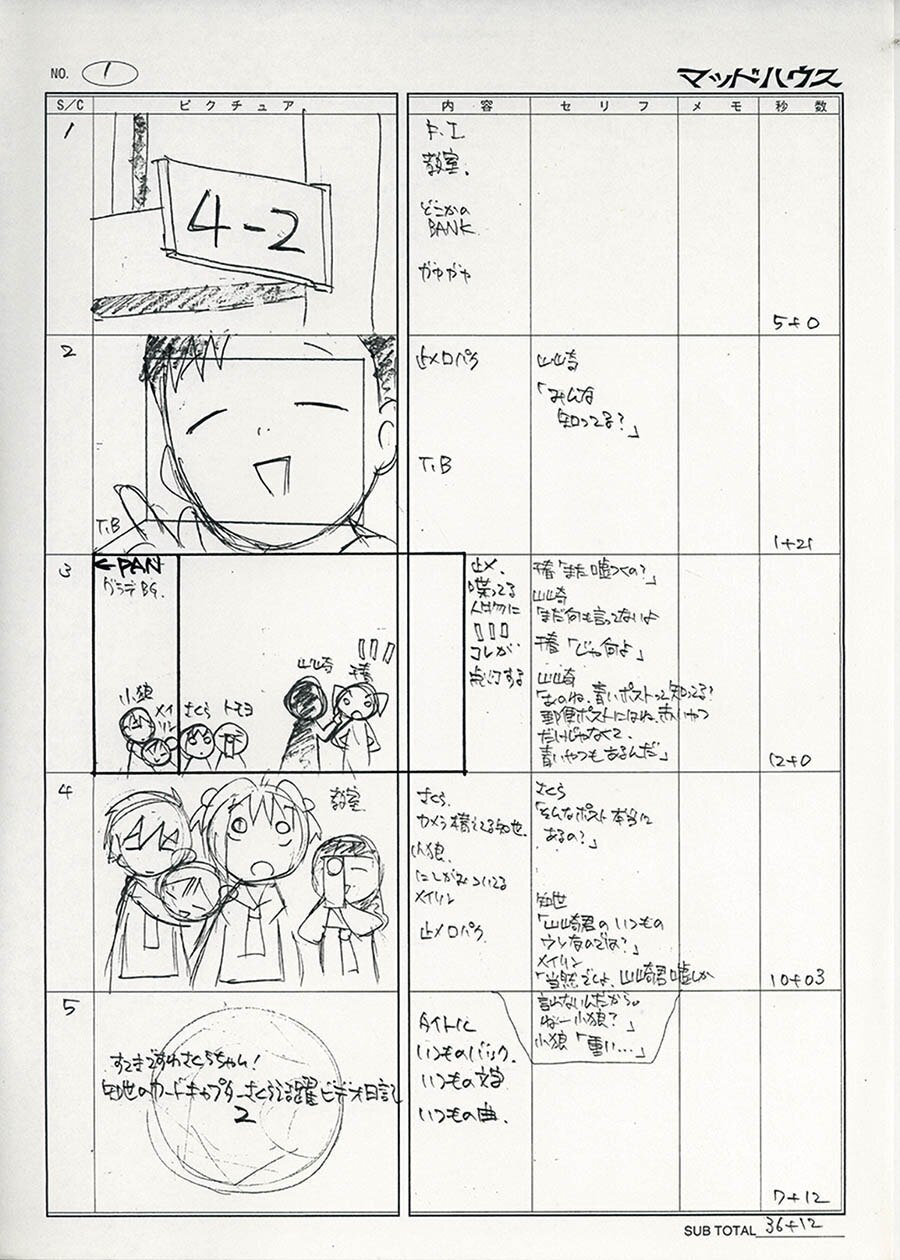 NO. 1
マッドハウス
S/C ピクチュア 内容 セリフ メモ 秒数
1
4-2
F.I
教室.
どこかの
BANK
ガヤガヤ
5+0
2
PAN
T.B
止メ口パク
T.B
山崎
「みんな
知ってる?」
1+21
3
←PAN
グラデBG.
小狼
メイリン
さくら
トモヨ
山崎
千春
止メ.
喋ってる
人物に
コレが
点灯する
千春「また嘘つくの?」
山崎
「まだ何も言ってないよ
千春「じゃ何よ」
山崎
「あのね、青いポストって知ってる?
郵便ポストにはね、赤いやつ
だけじゃなくて、
青いやつもあるんだ」
12+0
4
教室.
さくら.
カメラ構えてる知世.
小狼.
にしがみついてる
メイリン
止メ口パク.
さくら
「そんなポスト本当に
あるの?」
知世
「山崎君のいつもの
ウソなのでは?」
メイリン
「当然でしょ、山崎君嘘しか
言わないんだから。
ねー小狼?」
小狼「重い…」
10+03
5
すてきですわさくらちゃん!
知世のカードキャプターさくら活躍ビデオ日記
2
タイトル
いつものバック.
いつもの文字
いつもの曲.
7+12
SUB TOTAL 36+12